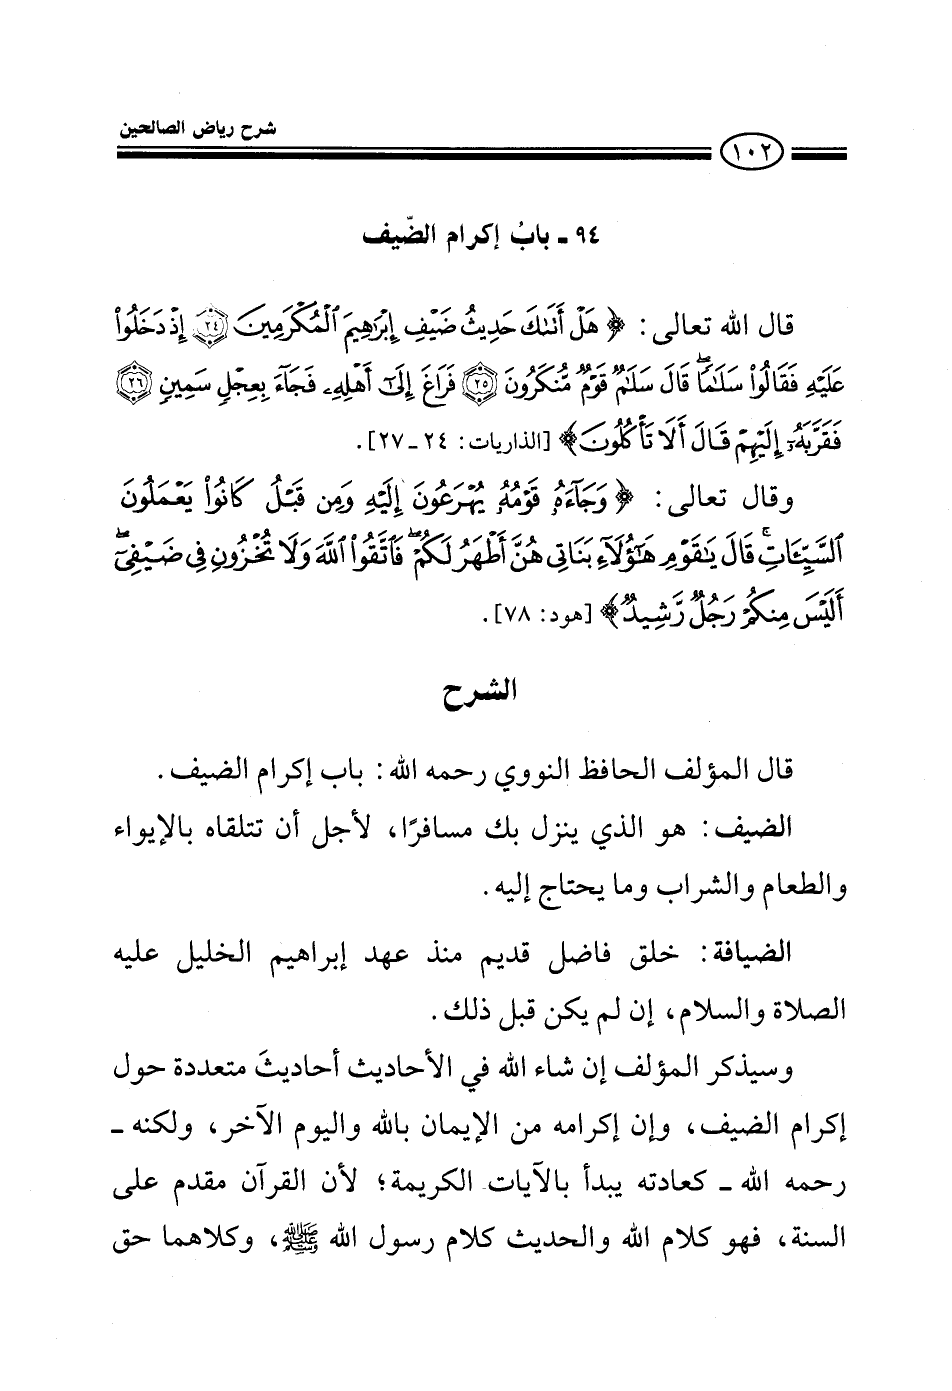 شرح رياض الصالحين
١٠٢
٩٤ ـ بابُ إكرام الضّيف
قال الله تعالى: ﴿ هَلْ أَتَىٰكَ حَدِيثُ ضَيْفِ إِبْرَٰهِيمَ ٱلْمُكْرَمِينَ ٢٤ إِذْ دَخَلُوا۟
عَلَيْهِ فَقَالُوا۟ سَلَٰمًا ۖ قَالَ سَلَٰمٌ قَوْمٌ مُّنكَرُونَ ٢٥ فَرَاغَ إِلَىٰٓ أَهْلِهِۦ فَجَآءَ بِعِجْلٍ سَمِينٍ ٢٦
فَقَرَّبَهُۥٓ إِلَيْهِمْ قَالَ أَلَا تَأْكُلُونَ ﴾ [الذاريات: ٢٤ ـ ٢٧].
وقال تعالى: ﴿ وَجَآءَهُۥ قَوْمُهُۥ يُهْرَعُونَ إِلَيْهِ وَمِن قَبْلُ كَانُوا۟ يَعْمَلُونَ
ٱلسَّيِّـَٔاتِ ۚ قَالَ يَٰقَوْمِ هَٰٓؤُلَآءِ بَنَاتِى هُنَّ أَطْهَرُ لَكُمْ ۖ فَٱتَّقُوا۟ ٱللَّهَ وَلَا تُخْزُونِ فِى ضَيْفِىٓ ۖ
أَلَيْسَ مِنكُمْ رَجُلٌ رَّشِيدٌ ﴾ [هود: ٧٨].
الشرح
قال المؤلف الحافظ النووي رحمه الله: باب إكرام الضيف.
الضيف: هو الذي ينزل بك مسافرًا، لأجل أن تتلقاه بالإيواء
والطعام والشراب وما يحتاج إليه.
الضيافة: خلق فاضل قديم منذ عهد إبراهيم الخليل عليه
الصلاة والسلام، إن لم يكن قبل ذلك.
وسيذكر المؤلف إن شاء الله في الأحاديث أحاديثَ متعددة حول
إكرام الضيف، وإن إكرامه من الإيمان بالله واليوم الآخر، ولكنه ـ
رحمه الله ـ كعادته يبدأ بالآيات الكريمة؛ لأن القرآن مقدم على
السنة، فهو كلام الله والحديث كلام رسول الله ﷺ، وكلاهما حق